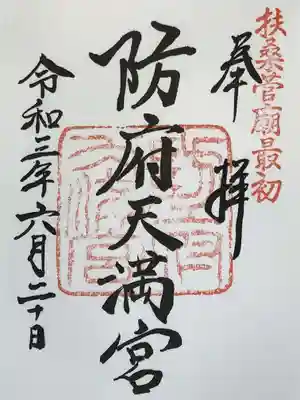 扶桑菅廟最初
奉拝
防府天満宮
令和三年六月二十日